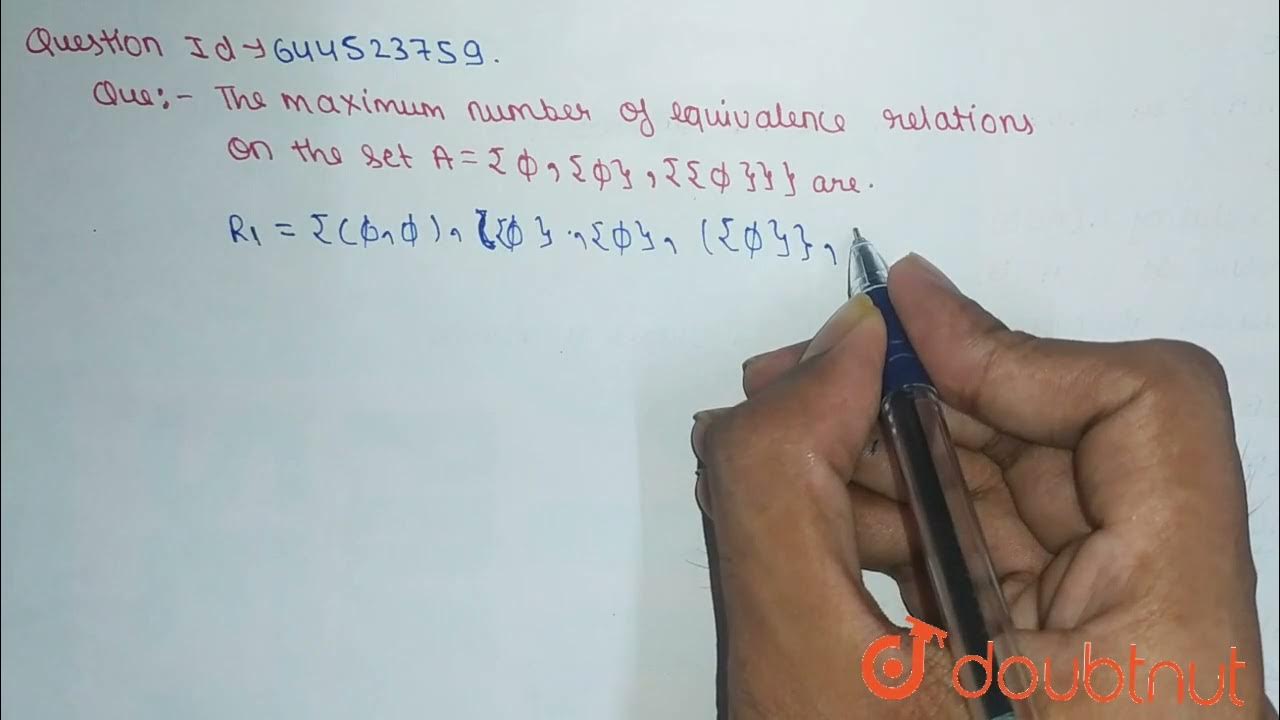 Question Id→644523759.
Que:- The maximum number of equivalence relations
on the set A={ϕ,{ϕ},{{ϕ}}} are.
R1 = {(ϕ,ϕ), ({ϕ},{ϕ}, ({ϕ}},
doubtnut